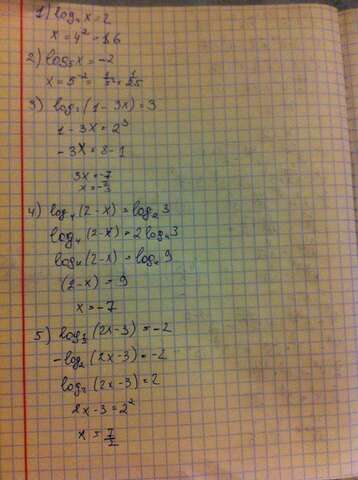 1) log₄ x = 2
x = 4² = 16
2) log₅ x = -2
x = 5⁻² = 1/5² = 1/25
3) log₂ (1 - 3x) = 3
1 - 3x = 2³
-3x = 8 - 1
3x = -7
x = -7/3
4) log₄ (2 - x) = log₂ 3
log₄ (2 - x) = 2 log₄ 3
log₄ (2 - x) = log₄ 9
(2 - x) = 9
x = -7
5) log½ (2x - 3) = -2
-log₂ (2x - 3) = -2
log₂ (2x - 3) = 2
2x - 3 = 2²
x = 7/2